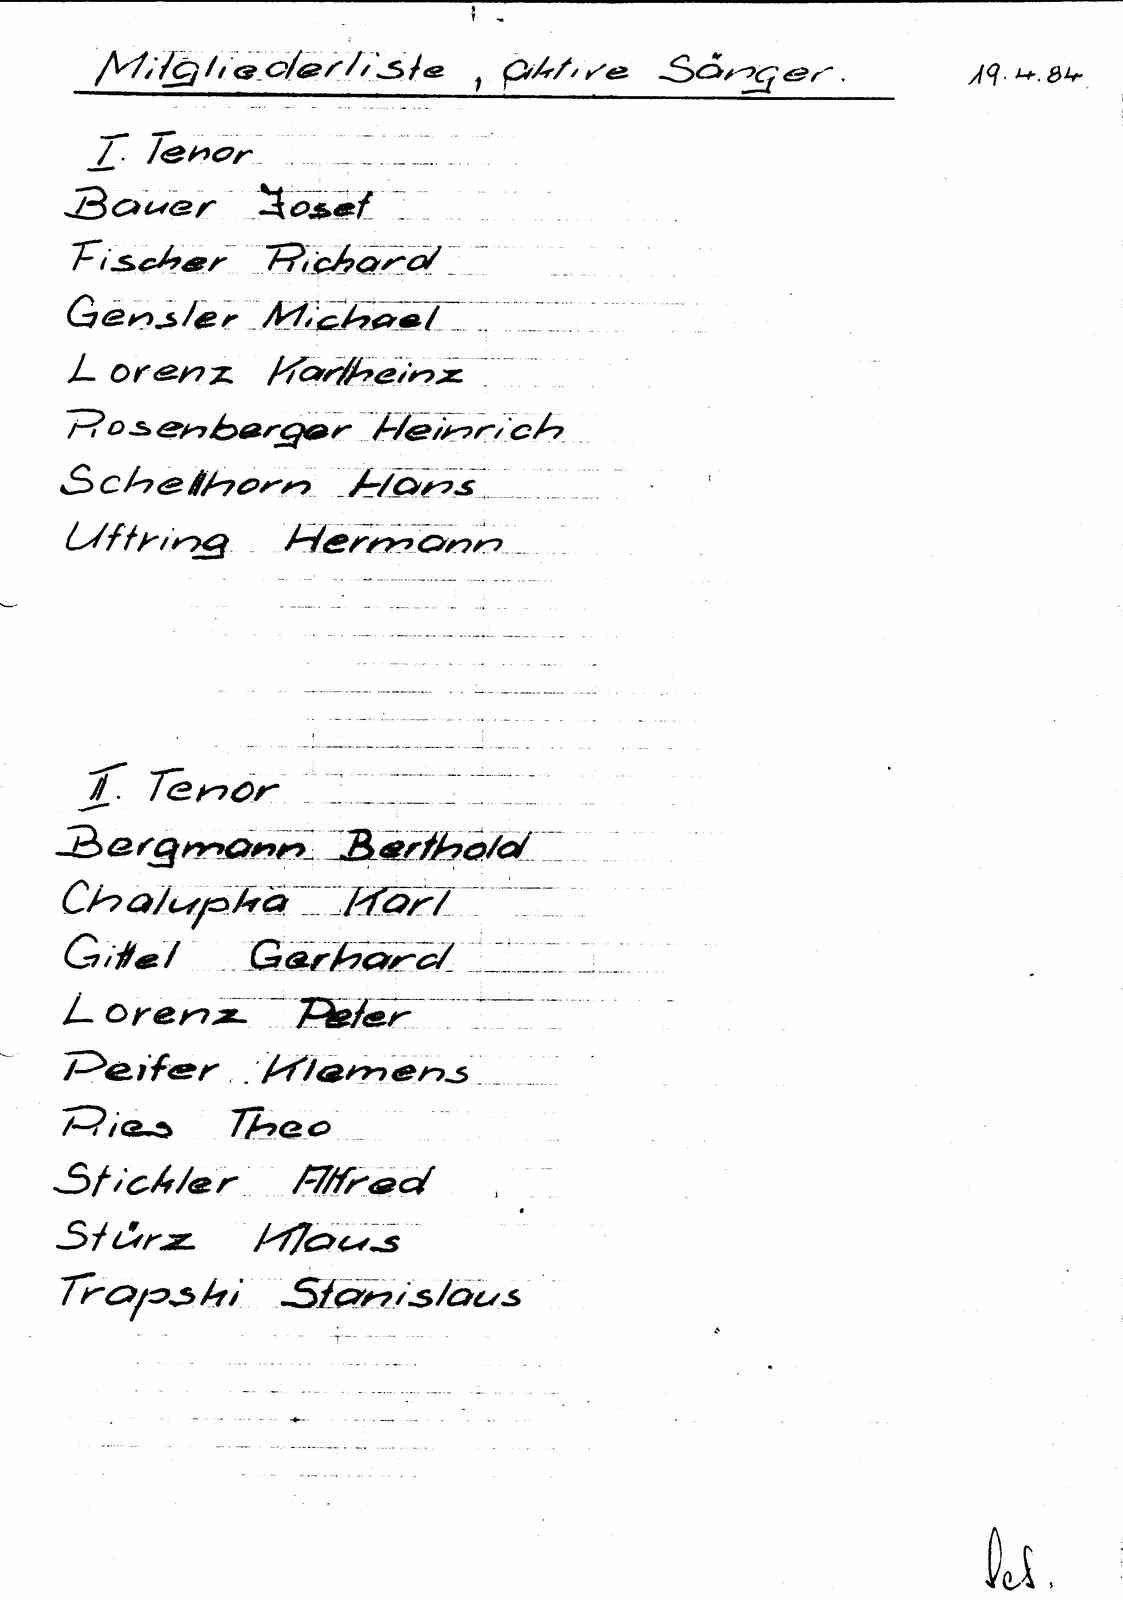 Mitgliederliste, aktive Sänger. 19.4.84
I. Tenor
Bauer Josef
Fischer Richard
Gensler Michael
Lorenz Karlheinz
Rosenberger Heinrich
Schellhorn Hans
Uftring Hermann
II. Tenor
Bergmann Berthold
Chalupka Karl
Gittel Gerhard
Lorenz Peter
Peifer Klemens
Ries Theo
Stickler Alfred
Stürz Klaus
Trapski Stanislaus